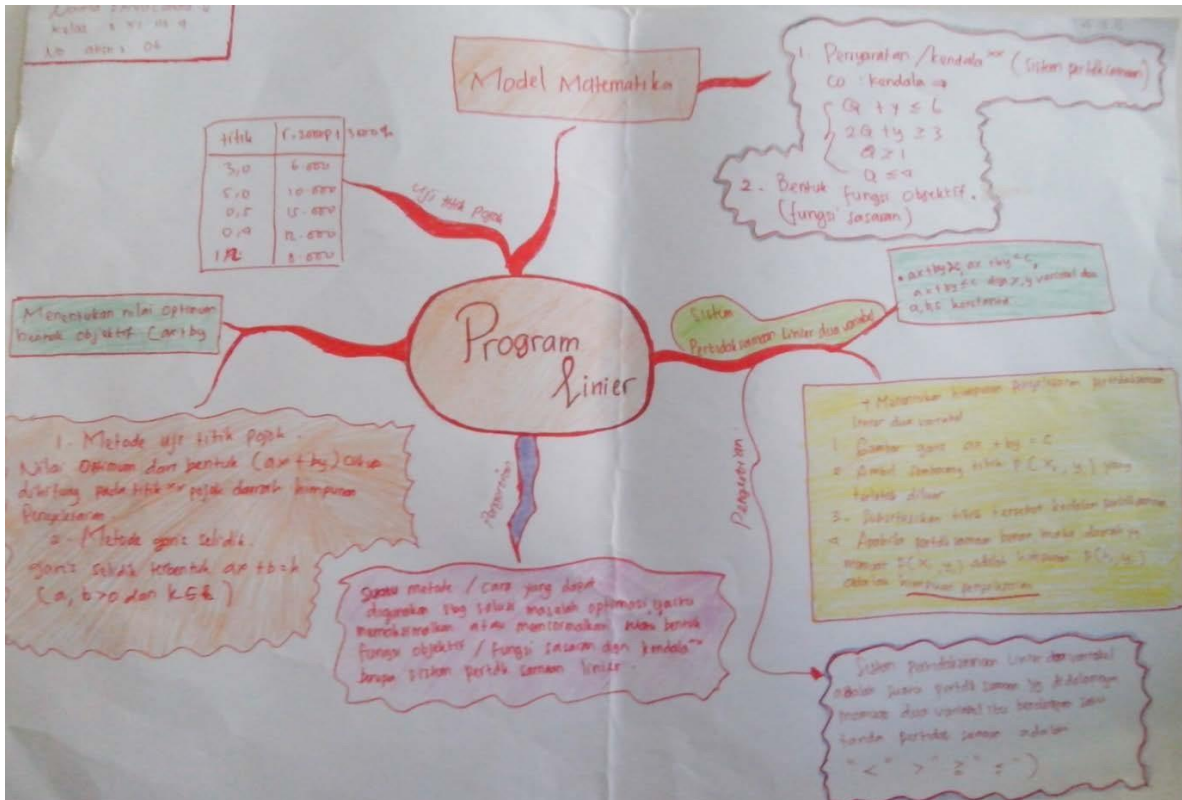 kelas :
No absen : 06
Model Matematika
1. Persyaratan / kendala (sistem pertdk samaan)
co : kendala →
Q + y ≤ 6
2Q + y ≥ 3
Q ≥ 1
Q ≤ 4
2. Bentuk fungsi Objektif.
(fungsi sasaran)
titik
3,0 6.000
5,0 10.000
0,5 15.000
0,4 12.000
8.000
Uji titik pojok
Menentukan nilai optimum
bentuk objektif (ax+by
Program
Linier
Sistem
Pertidaksamaan Linier dua variabel
a,b,c konstanta
1. Metode uji titik pojok.
Nilai Optimum dari bentuk (ax+by) cukup
dihitung pada titik pojok daerah himpunan
Penyelesaian
2. Metode garis selidik.
garis selidik terbentuk ax + b = k
(a, b > 0 dan k
Pengertian
Suatu metode / cara yang dapat
digunakan sbg solusi masalah optimasi yaitu
atau suatu bentuk
fungsi objektif / fungsi sasaran dgn kendala
berupa sistem pertdk samaan linier.
Pengertian
+ Menentukan himpunan penyelesaian pertidaksamaan
linier dua variabel
1. Gambar garis ax + by = c
2. Ambil sembarang titik P(x₁, y₁) yang
terletak diluar
3. titik tersebut kedalam pertidaksamaan
4. Apabila pertdksamaan benar maka daerah yg
memuat P(x₁, y₁) adalah himpunan
adalah himpunan penyelesaian
Sistem pertidaksamaan linier dua variabel
adalah suatu pertdk samaan yg didalamnya
memuat dua variabel
tanda pertidak samaan adalah